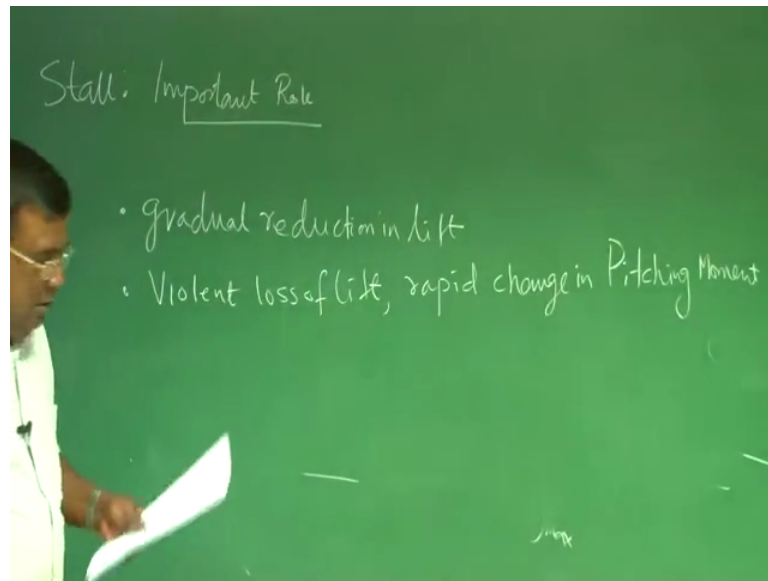 Stall: Important Role
• gradual reduction in lift
• Violent loss of lift, rapid change in Pitching Moment